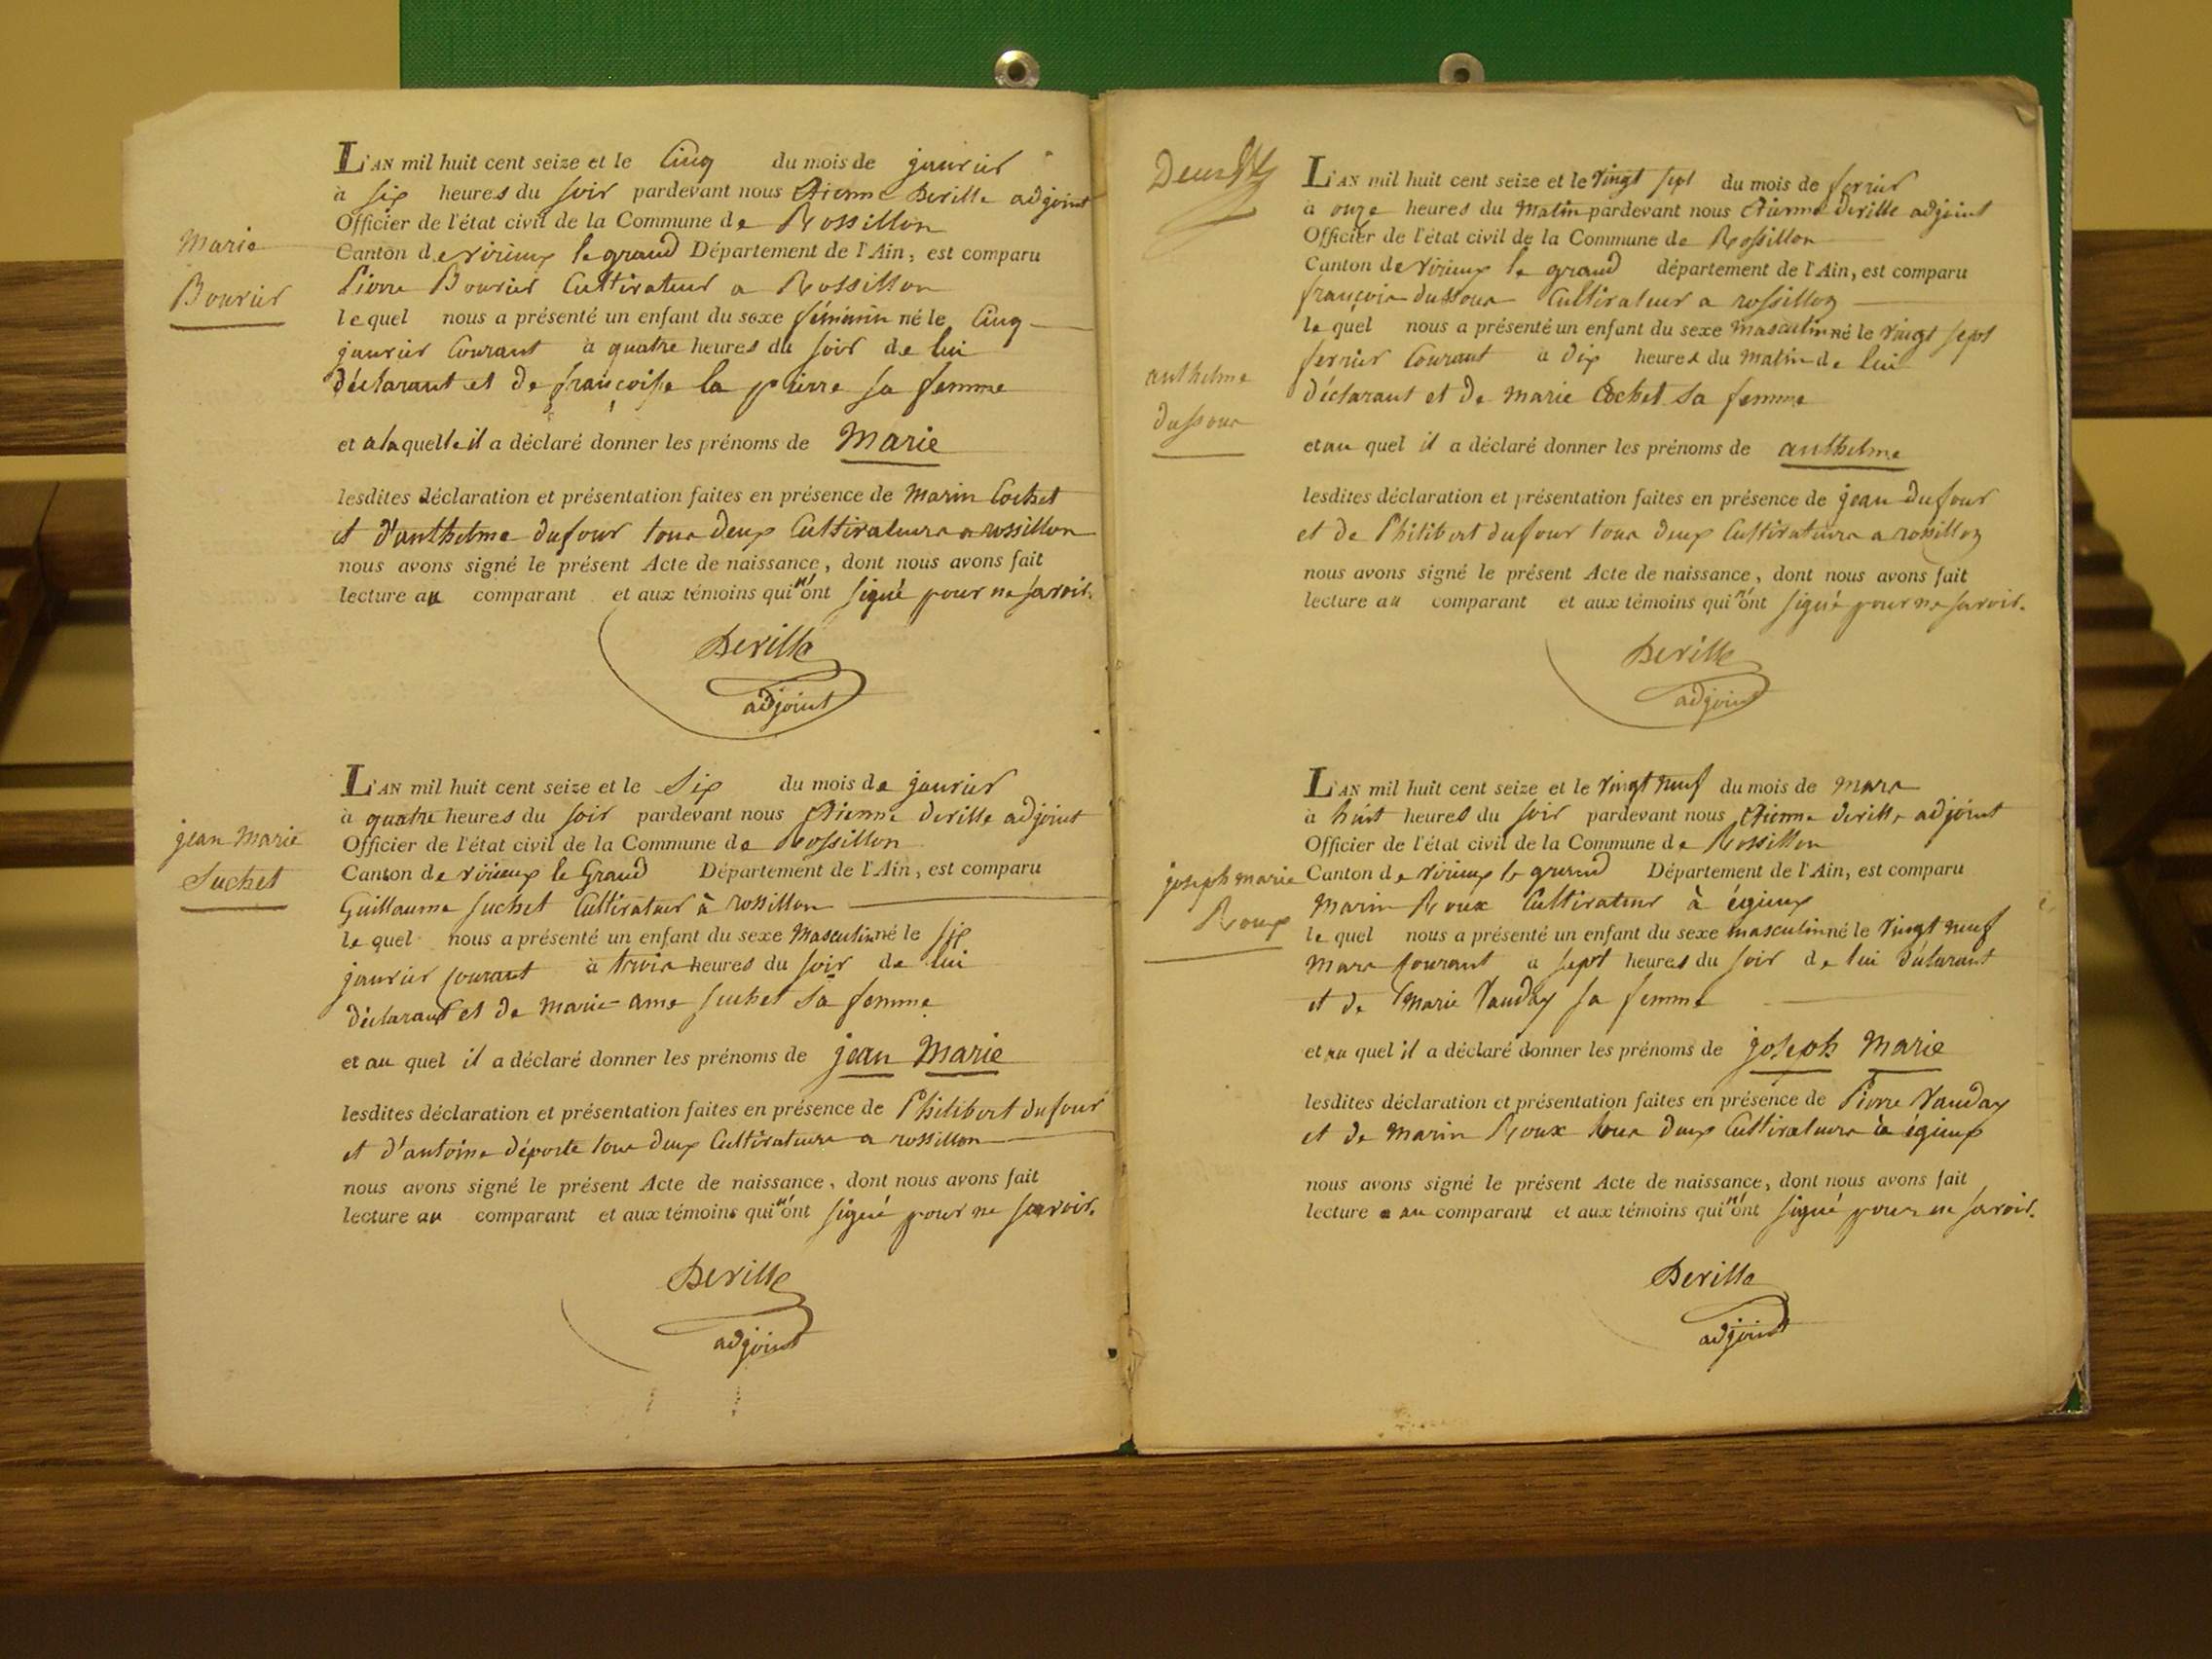 Marie
Bouvier
L'AN mil huit cent seize et le Cinq du mois de janvier
à six heures du soir pardevant nous Etienne Deville adjoint
Officier de l'état civil de la Commune de Rossillon
Canton de virieux le grand Département de l'Ain, est comparu
Pierre Bouvier Cultivateur a Rossillon
lequel nous a présenté un enfant du sexe féminin né le Cinq
janvier Courant à quatre heures du soir de lui
déclarant et de françoise la pierre sa femme
et a laquelle il a déclaré donner les prénoms de Marie
lesdites déclaration et présentation faites en présence de Marin Cochet
et d'anthelme dufour tous deux Cultivateurs a rossillon
nous avons signé le présent Acte de naissance, dont nous avons fait
lecture au comparant et aux témoins qui n'ont signé pour ne savoir.
Deville
adjoint
jean Marie
Suchet
L'AN mil huit cent seize et le Six du mois de janvier
à quatre heures du soir pardevant nous Etienne deville adjoint
Officier de l'état civil de la Commune de Rossillon
Canton de virieux le Grand Département de l'Ain, est comparu
Guillaume Suchet Cultivateur à rossillon
lequel nous a présenté un enfant du sexe Masculin né le six
janvier courant à trois heures du soir de lui
déclarant et de marie ame suchet sa femme
et au quel il a déclaré donner les prénoms de jean Marie
lesdites déclaration et présentation faites en présence de Philibert dufour
et d'antoine déporte tous deux Cultivateurs a rossillon
nous avons signé le présent Acte de naissance, dont nous avons fait
lecture au comparant et aux témoins qui n'ont signé pour ne savoir.
Deville
adjoint
anthelme
dussour
L'AN mil huit cent seize et le vingt sept du mois de fevrier
à onze heures du Matin pardevant nous Etienne deville adjoint
Officier de l'état civil de la Commune de Rossillon
Canton de virieux le grand département de l'Ain, est comparu
françois dussour Cultivateur a rossillon
le quel nous a présenté un enfant du sexe masculin né le vingt sept
fevrier Courant à dix heures du Matin de lui
déclarant et de marie Cochet sa femme
et au quel il a déclaré donner les prénoms de anthelme
lesdites déclaration et présentation faites en présence de jean dufour
et de Philibert dufour tous deux Cultivateurs a rossillon
nous avons signé le présent Acte de naissance, dont nous avons fait
lecture au comparant et aux témoins qui n'ont signé pour ne savoir.
Deville
adjoint
joseph marie
Roux
L'AN mil huit cent seize et le vingt neuf du mois de mars
à huit heures du soir pardevant nous Etienne deville adjoint
Officier de l'état civil de la Commune de Rossillon
Canton de virieux le grand Département de l'Ain, est comparu
Marin Roux Cultivateur à égieux
le quel nous a présenté un enfant du sexe masculin né le vingt neuf
mars courant à sept heures du soir de lui déclarant
et de Marie Vauday sa femme
et au quel il a déclaré donner les prénoms de joseph Marie
lesdites déclaration et présentation faites en présence de Pierre Vauday
et de marin Roux tous deux Cultivateurs à égieux
nous avons signé le présent Acte de naissance, dont nous avons fait
lecture au comparant et aux témoins qui n'ont signé pour ne savoir.
Deville
adjoint